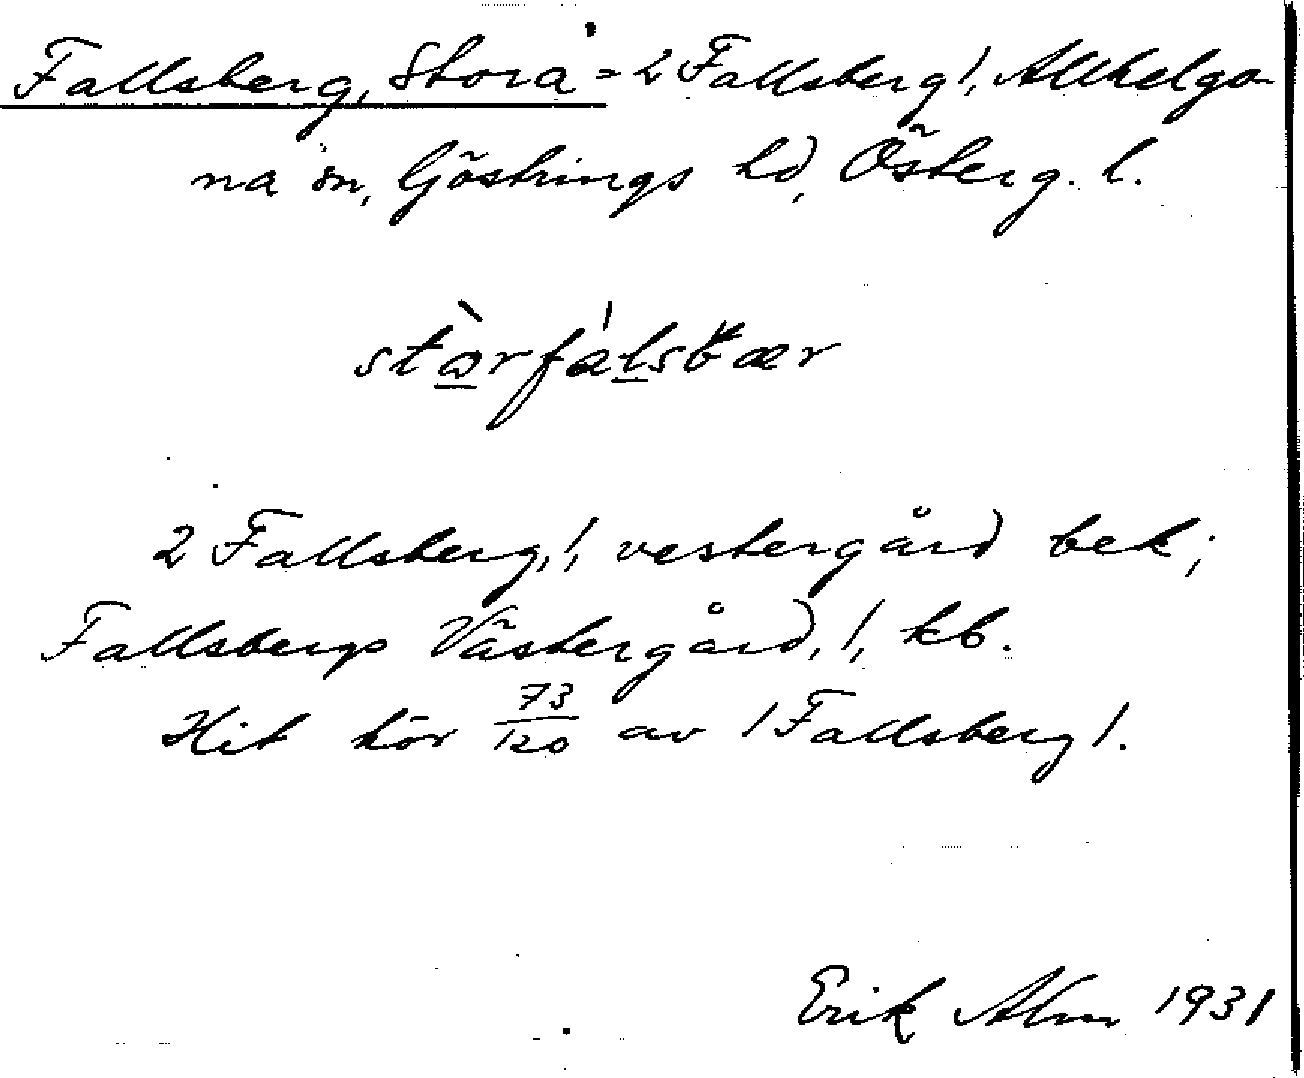 Fallsberg, Stora = 2 Fallsberg 1, Allhelgo-
na sn, Göstrings hd, Österg. l.
stàrfálsbær
2 Fallsberg, 1, vestergård bek;
Fallsbergs Västergård, 1, kb.
Hit hör 73/120 av 1 Fallsberg 1.
Erik Alm 1931